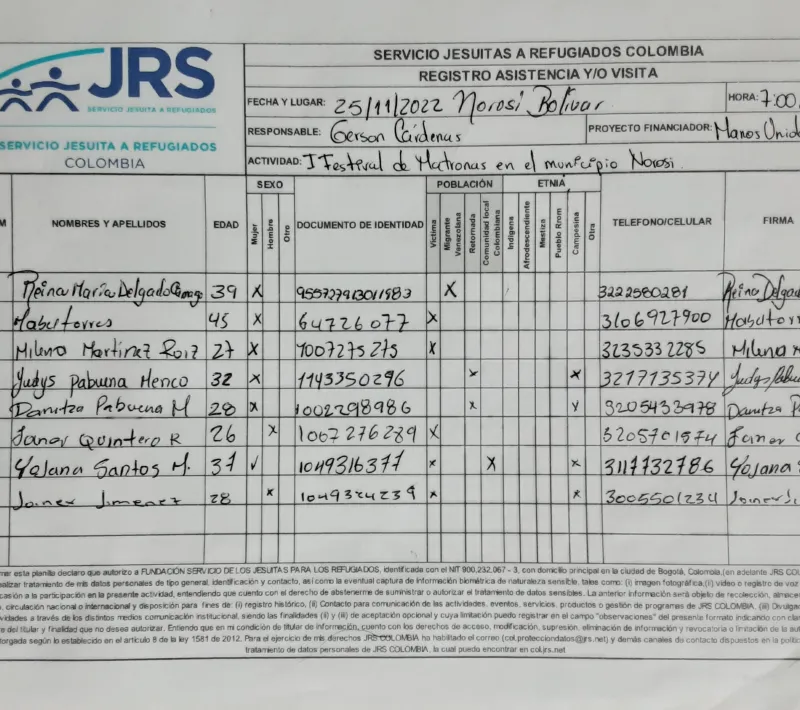 JRS
SERVICIO JESUITA A REFUGIADOS
SERVICIO JESUITA A REFUGIADOS
COLOMBIA
SERVICIO JESUITAS A REFUGIADOS COLOMBIA
REGISTRO ASISTENCIA Y/O VISITA
FECHA Y LUGAR: 25/11/2022 Norosi Bolivar HORA: 7:00
RESPONSABLE: Gerson Cárdenas PROYECTO FINANCIADOR: Manos Unid
ACTIVIDAD: I Festival de Matronas en el municipio Norosi.
NOMBRES Y APELLIDOS EDAD SEXO Mujer Hombre Otro DOCUMENTO DE IDENTIDAD POBLACIÓN Víctima Migrante Venezolana Retornada Comunidad local Colombiana ETNIA Indigena Afrodescendiente Mestiza Pueblo Rrom Campesina Otra TELEFONO/CELULAR FIRMA
Reina Maria Delgado 39 X 955727913011983 X 3222580281 Reina Delgad
Mabel torres 45 X 64726077 X 3106927900 Mabel tor
Milena Martinez Roiz 27 X 1007275275 X 3235332285 Milena M
Yudys Pabuena Henco 32 X 1143350296 X X 3217135374 Yudys Pabu
Danitza Pabuena M 28 X 1002298986 X X 3205433978 Danitza P
Janer Quintero R 26 X 1067276289 X 3205701574 Janer
Yojana Santos M. 37 ✓ 1049316377 X X X 3117732786 Yojana
Joiner Jimenez 28 X 1049324239 X X 3005501234 Joiner
mar esta planilla declaro que autorizo a FUNDACIÓN SERVICIO DE LOS JESUITAS PARA LOS REFUGIADOS, identificada con el NIT 900.232.067 - 3, con domicilio principal en la ciudad de Bogotá, Colombia,(en adelante JRS COL
alizar tratamiento de mis datos personales de tipo general, identificación y contacto, así como la eventual captura de información biométrica de naturaleza sensible, tales como: (i) imagen fotográfica,(ii) video o registro de voz
casión a la participación en la presente actividad, entendiendo que cuento con el derecho de abstenerme de suministrar o autorizar el tratamiento de datos sensibles. La anterior información será objeto de recolección, almace
, circulación nacional o internacional y disposición para fines de: (i) registro histórico, (ii) Contacto para comunicación de las actividades, eventos, servicios, productos o gestión de programas de JRS COLOMBIA, (iii) Divulga
vidades a través de los distintos medios comunicación institucional, siendo las finalidades (i) y (iii) de aceptación opcional y cuya limitación puedo registrar en el campo "observaciones" del presente formato indicando con clar
e del titular y finalidad que no desea autorizar. Entiendo que en mi condición de titular de información, cuento con los derechos de acceso, modificación, supresión, eliminación de información y revocatoria o limitación de la aut
torgada según lo establecido en el artículo 8 de la ley 1581 de 2012. Para el ejercicio de mis derechos JRS COLOMBIA ha habilitado el correo (col.protecciondatos@jrs.net) y demás canales de contacto dispuestos en la polític
tratamiento de datos personales de JRS COLOMBIA, la cual puedo encontrar en col.jrs.net